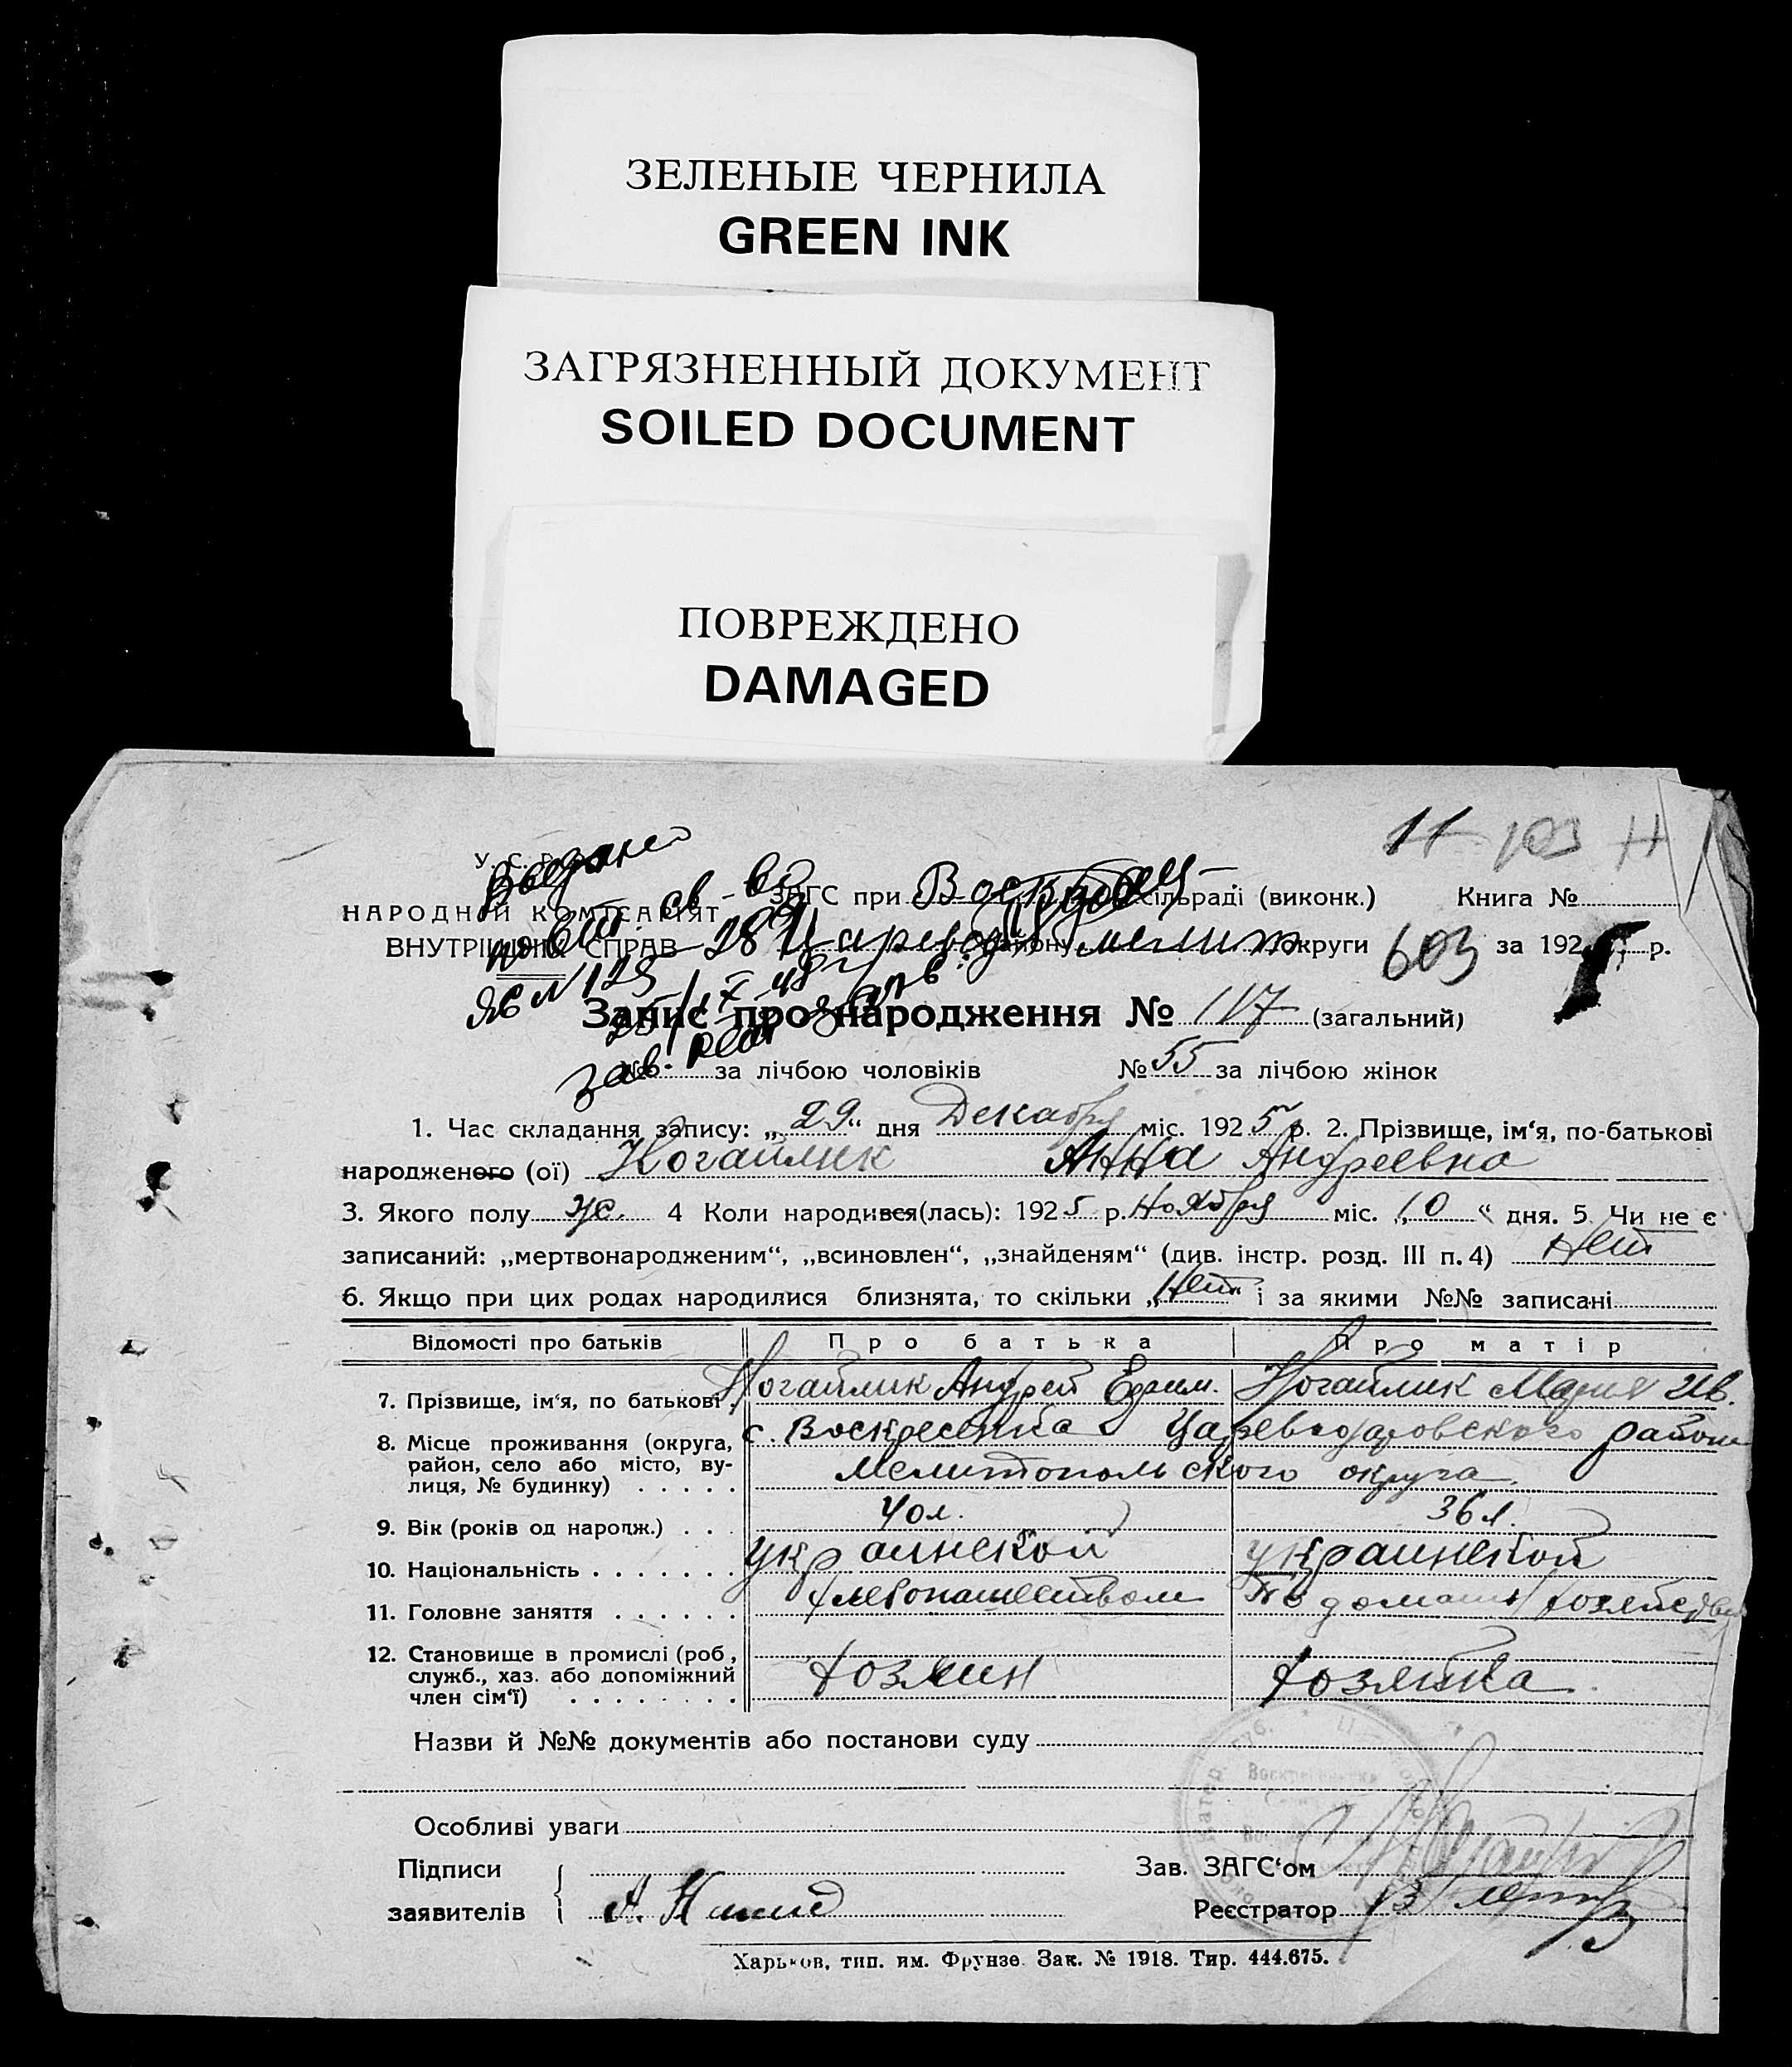 ЗЕЛЕНЫЕ ЧЕРНИЛА
GREEN INK
ЗАГРЯЗНЕННЫЙ ДОКУМЕНТ
SOILED DOCUMENT
ПОВРЕЖДЕНО
DAMAGED
11 103 Н
У. С. Р. Р.
НАРОДНІЙ КОМІСАРІЯТ
ВНУТРІШНІХ СПРАВ
ЗАГС при Воскр сільраді (виконк.) Книга №
Царевод району Мелит округи 603 за 1925 р.
Запис про народження № 117 (загальний)
№ за лічбою чоловіків № 55 за лічбою жінок
1. Час складання запису: „29“ дня Декабря міс. 1925 р. 2. Прізвище, ім‘я, по-батькові
народженого (ої) Ногайлик Анна Андреевна
3. Якого полу ж. 4 Коли народився(лась): 1925 р. Ноября міс. „10“ дня. 5. Чи не є
записаний: „мертвонародженим“, „всиновлен“, „знайденям“ (див. інстр. розд. III п. 4) Нет
6. Якщо при цих родах народилися близнята, то скільки „Нет“ і за якими №№ записані
Відомості про батьків Про батька Про матір
7. Прізвище, ім‘я, по батькові Ногайлик Андрей Ефим. Ногайлик Мария Ив.
8. Місце проживання (округа, район, село або місто, вулиця, № будинку) с. Воскресенка Царевода­ровского района
Мелитопольского округа
9. Вік (років од народж.) 40 л. 36 л.
10. Національність украинской украинской
11. Головне заняття хлебопашеством по домашн хозяйству
12. Становище в промислі (роб, служб., хаз. або допоміжний член сім‘ї) хозяин хозяйка
Назви й №№ документів або постанови суду
Особливі уваги
Підписи Зав. ЗАГС‘ом
заявителів Реєстратор
Харьков, тип. им. Фрунзе. Зак. № 1918. Тир. 444.675.